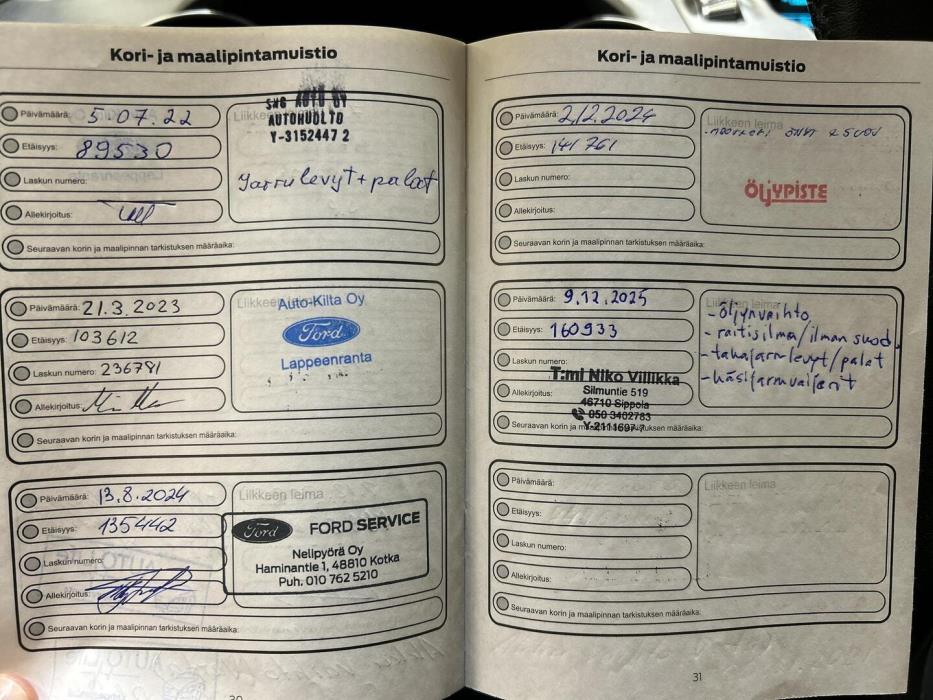 Kori- ja maalipintamuistio
Päivämäärä: 5.07.22
Etäisyys: 89530
Laskun numero:
Allekirjoitus:
Seuraavan korin ja maalipinnan tarkistuksen määräaika:
AUTO OY
AUTOHUOLTO
Y-3152447 2
Jarrulevyt + palat
Päivämäärä: 21.3.2023
Etäisyys: 103612
Laskun numero: 236781
Allekirjoitus:
Seuraavan korin ja maalipinnan tarkistuksen määräaika:
Liikkeen leima
Auto-Kilta Oy
Ford
Lappeenranta
Päivämäärä: 13.8.2024
Etäisyys: 135442
Laskun numero:
Allekirjoitus:
Seuraavan korin ja maalipinnan tarkistuksen määräaika:
Liikkeen leima
Ford FORD SERVICE
Nelipyörä Oy
Haminantie 1, 48810 Kotka
Puh. 010 762 5210
Kori- ja maalipintamuistio
Päivämäärä: 2/12.2024
Etäisyys: 141761
Laskun numero:
Allekirjoitus:
Seuraavan korin ja maalipinnan tarkistuksen määräaika:
Liikkeen leima
ÖLJYPISTE
Päivämäärä: 9.12.2025
Etäisyys: 160933
Laskun numero:
Allekirjoitus:
Seuraavan korin ja maalipinnan tarkistuksen määräaika:
T:mi Niko Villikka
Silmuntie 519
46710 Sippola
050 3402783
Y-2111697-7
Liikkeen leima
- Öljynvaihto
- raitisilma/ilman suod.
- takajarrulevyt/palat
- käsijarruvaijerit
Päivämäärä:
Etäisyys:
Laskun numero:
Allekirjoitus:
Seuraavan korin ja maalipinnan tarkistuksen määräaika:
Liikkeen leima
31